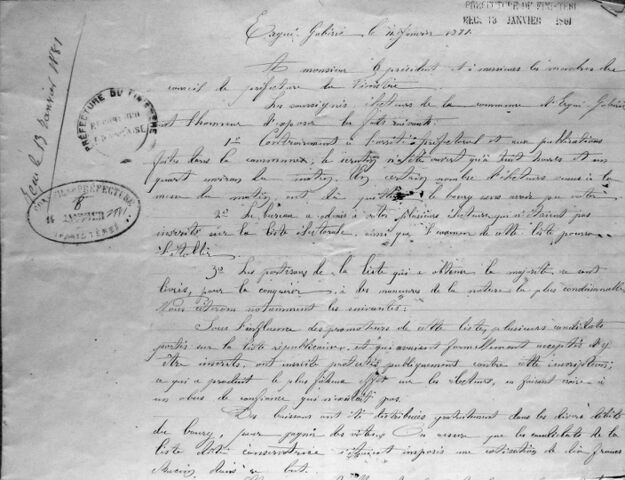 PRÉFECTURE DU FINISTÈRE
REÇU 13 JANVIER 1881
Ergué-Gabéric le Janvier 1881
Reçu le 13 Janvier 1881
A monsieur le président et à messieurs les membres du
conseil de préfecture du Finistère
PRÉFECTURE DU FINISTÈRE
Les soussignés, électeurs de la commune d'Ergué-Gabéric
ont l'honneur d'exposer les faits suivants:
1o Contrairement à l'arrêté préfectoral et aux publications
faites dans la commune, le scrutin n'a été ouvert qu'à huit heures et un
quart environ du matin. Un certain nombre d'électeurs venus à la
messe du matin, ont dû quitter le bourg sans avoir pu voter.
CONSEIL DE PRÉFECTURE
14 JANVIER 1881
(FINISTÈRE)
2o Le bureau a admis à voter plusieurs électeurs qui n'étaient pas
inscrits sur la liste électorale, ainsi que l'examen de cette liste pourra
l'établir.
3o Les partisans de la liste qui a obtenu la majorité se sont
livrés, pour la conquérir, à des manœuvres de la nature la plus condamnable.
Nous citerons notamment les suivantes:
Sous l'influence des promoteurs de cette liste, plusieurs candidats
portés sur la liste républicaine, et qui avaient formellement accepté d'y
être inscrits, ont ensuite protesté publiquement contre cette inscription,
ce qui a produit le plus fâcheux effet sur les électeurs, en faisant croire à
un abus de confiance qui n'existait pas.
Des boissons ont été distribuées gratuitement dans les divers débits
du bourg, pour gagner des votes. On assure que les candidats de la
liste dite conservatrice s'étaient imposés une cotisation de dix francs
chacun dans ce but.